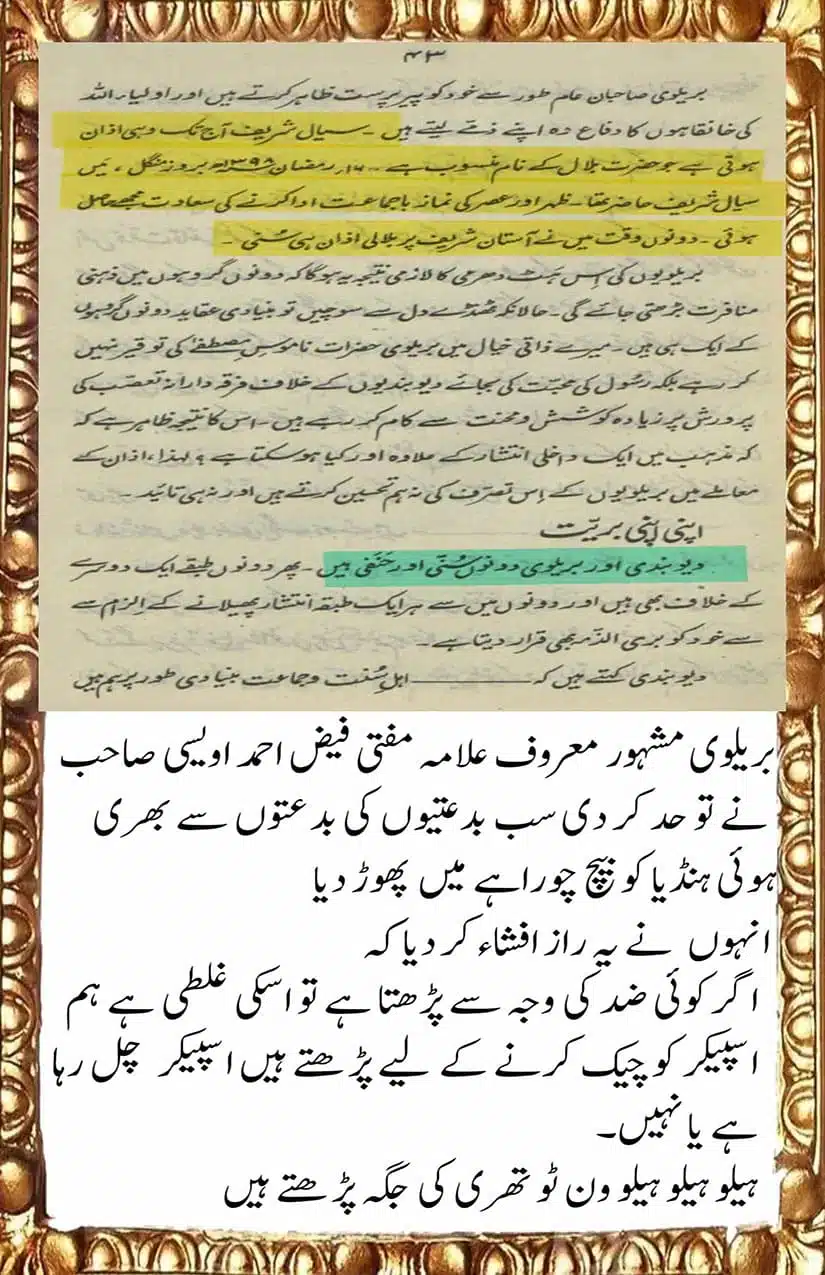 ۴۳
بریلوی صاحبان عام طور سے خود کو پیر پرست ظاہر کرتے ہیں اور اولیاء اللہ
کی خانقاہوں کا دفاع وہ اپنے ذمّے لیتے ہیں ۔ سیال شریف آج تک وہی اذان
ہوتی ہے جو حضرت بلال کے نام منسوب ہے ۔ ۱۶ رمضان ۱۳۹۸ھ بروز منگل ، میں
سیال شریف حاضر تھا ۔ ظہر اور عصر کی نماز باجماعت ادا کرنے کی سعادت مجھے حاصل
ہوئی ۔ دونوں وقت میں نے آستان شریف پر بلالی اذان ہی سُنی ۔
بریلویوں کی اِس ہٹ دھرمی کا لازمی نتیجہ یہ ہوگا کہ دونوں گروہوں میں ذہنی
منافرت بڑھتی جائے گی ۔ حالانکہ ٹھنڈے دل سے سوچیں تو بنیادی عقاید دونوں گروہوں
کے ایک ہی ہیں ۔ میرے ذاتی خیال میں بریلوی حضرات ناموسِ مصطفےٰ کی توقیر نہیں
کر رہے بلکہ رسُول کی محبّت کی بجائے دیوبندیوں کے خلاف فرقہ دارانہ تعصّب کی
پرورش پر زیادہ کوشش و محنت سے کام کر رہے ہیں ۔ اس کا نتیجہ ظاہر ہے کہ
کہ مذہب میں ایک داخلی انتشار کے علاوہ اور کیا ہو سکتا ہے ؟ لہٰذا ، اذان کے
معاملے میں بریلویوں کے اِس تصرّف کی نہ ہم تحسین کرتے ہیں اور نہ ہی تائید ۔
اپنی اپنی بریّت
دیوبندی اور بریلوی دونوں سُنّی اور حَنَفی ہیں ۔ پھر دونوں طبقے ایک دوسرے
کے خلاف بھی ہیں اور دونوں میں سے ہر ایک طبقہ انتشار پھیلانے کے اِلزم سے
سے خود کو بری الذمّہ بھی قرار دیتا ہے ۔
دیوبندی کہتے ہیں کہ ــــــــ اہلِ سُنت و جماعت بنیادی طور پر ہم ہیں
بریلوی مشہور معروف علامہ مفتی فیض احمد اویسی صاحب
نے تو حد کر دی سب بدعتیوں کی بدعتوں سے بھری
ہوئی ہنڈیا کو بیچ چوراہے میں پھوڑ دیا
انہوں نے یہ راز افشاء کر دیا کہ
اگر کوئی ضد کی وجہ سے پڑھتا ہے تو اسکی غلطی ہے ہم
اسپیکر کو چیک کرنے کے لیے پڑھتے ہیں اسپیکر چل رہا
ہے یا نہیں۔
ہیلو ہیلو ہیلو ون ٹو تھری کی جگہ پڑھتے ہیں